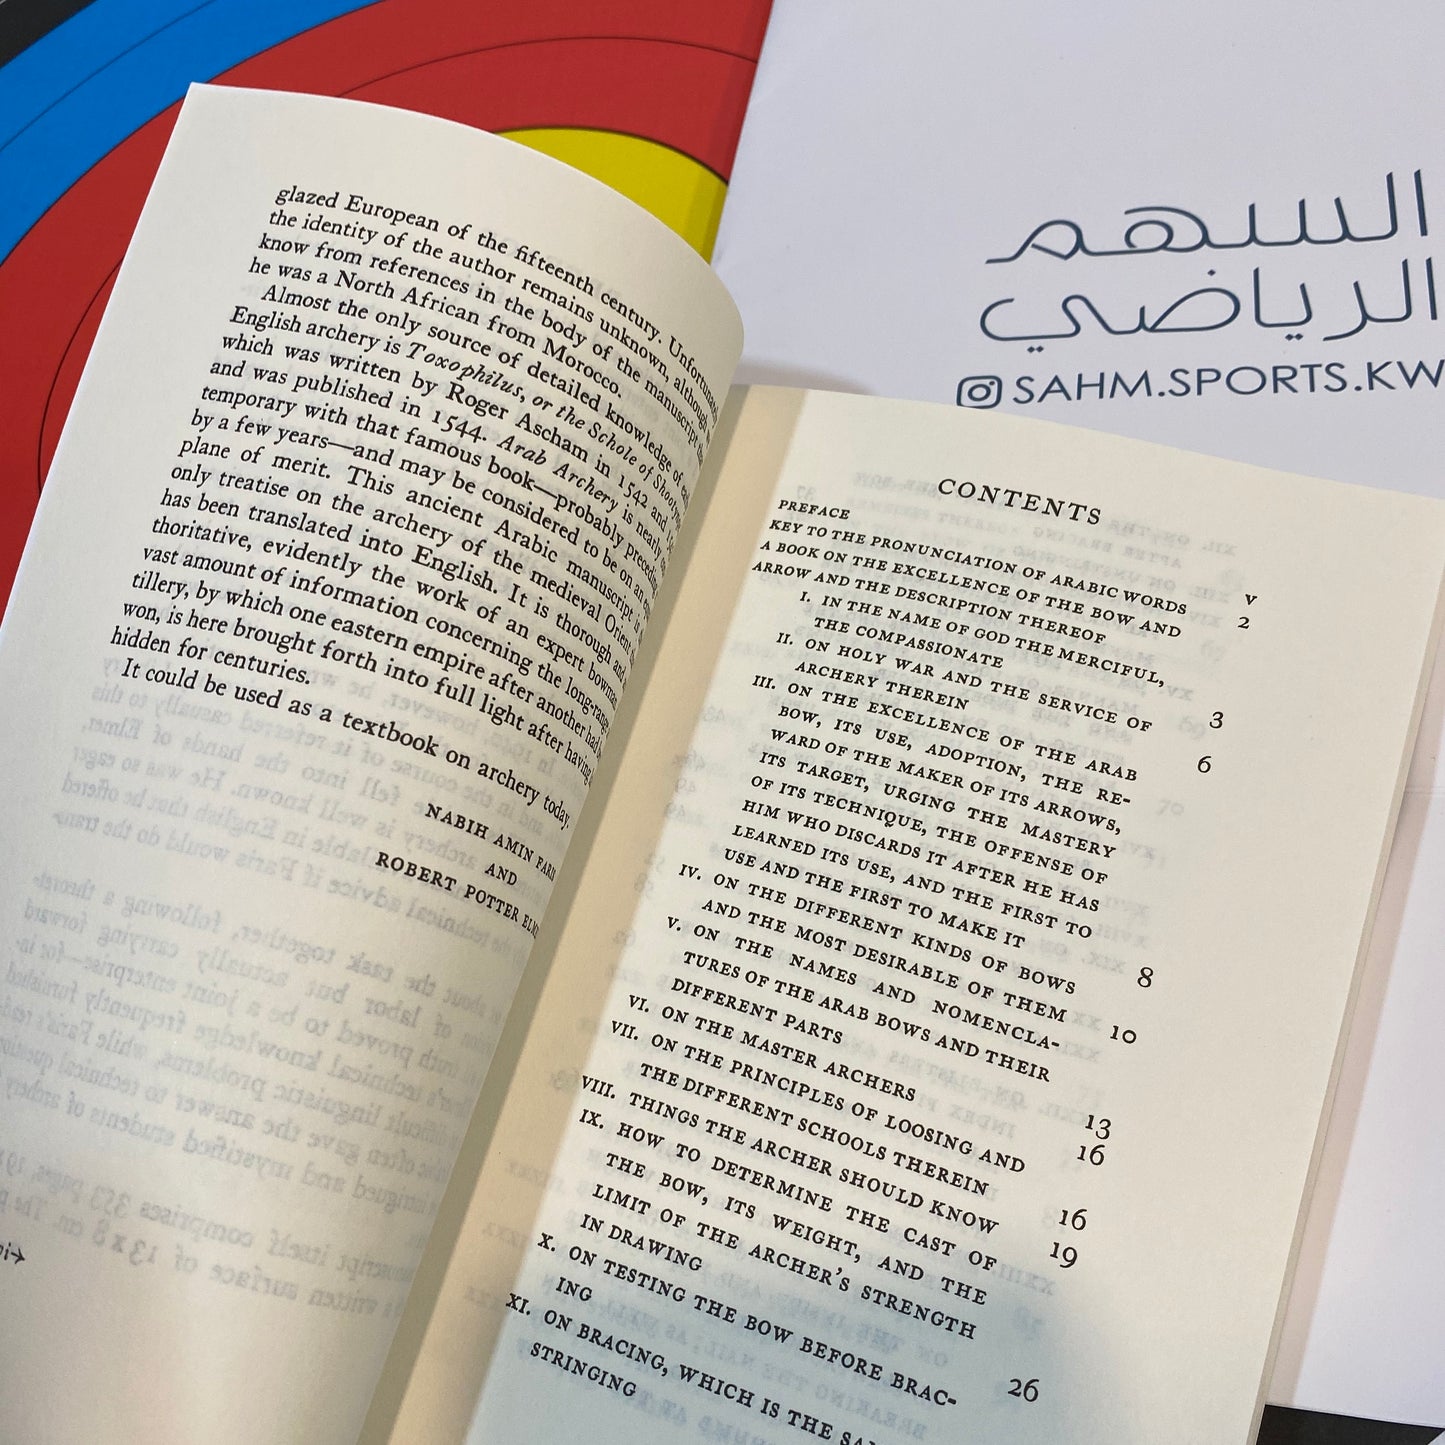 glazed European of the fifteenth century. Unfortunately
the identity of the author remains unknown, although
know from references in the body of the manuscript that
he was a North African from Morocco.
Almost the only source of detailed knowledge of
English archery is Toxophilus, or the Schole of
which was written by Roger Ascham in 1542 and
and was published in 1544. Arab Archery is nearly
temporary with that famous book—probably preceding
by a few years—and may be considered to be on an
plane of merit. This ancient Arabic manuscript is
only treatise on the archery of the medieval Orient
has been translated into English. It is thorough and
thoritative, evidently the work of an expert bowman.
vast amount of information concerning the long-range
tillery, by which one eastern empire after another had
won, is here brought forth into full light after having
hidden for centuries.
It could be used as a textbook on archery today.
NABIH AMIN FARIS
AND
ROBERT POTTER
السهم
الرياضي
SAHM.SPORTS.KW
CONTENTS
PREFACE v
KEY TO THE PRONUNCIATION OF ARABIC WORDS 2
A BOOK ON THE EXCELLENCE OF THE BOW AND
ARROW AND THE DESCRIPTION THEREOF
I. IN THE NAME OF GOD THE MERCIFUL,
THE COMPASSIONATE 3
II. ON HOLY WAR AND THE SERVICE OF
ARCHERY THEREIN 6
III. ON THE EXCELLENCE OF THE ARAB
BOW, ITS USE, ADOPTION, THE RE-
WARD OF THE MAKER OF ITS ARROWS,
ITS TARGET, URGING THE MASTERY
OF ITS TECHNIQUE, THE OFFENSE OF
HIM WHO DISCARDS IT AFTER HE HAS
LEARNED ITS USE, AND THE FIRST TO
USE AND THE FIRST TO MAKE IT 8
IV. ON THE DIFFERENT KINDS OF BOWS
AND THE MOST DESIRABLE OF THEM 10
V. ON THE NAMES AND NOMENCLA-
TURES OF THE ARAB BOWS AND THEIR
DIFFERENT PARTS 13
VI. ON THE MASTER ARCHERS 16
VII. ON THE PRINCIPLES OF LOOSING AND
THE DIFFERENT SCHOOLS THEREIN 16
VIII. THINGS THE ARCHER SHOULD KNOW 19
IX. HOW TO DETERMINE THE CAST OF
THE BOW, ITS WEIGHT, AND THE
LIMIT OF THE ARCHER'S STRENGTH
IN DRAWING 26
X. ON TESTING THE BOW BEFORE BRAC-
ING
XI. ON BRACING, WHICH IS THE
STRINGING